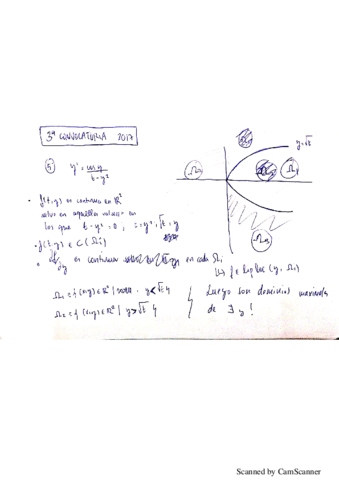 3ª CONVOCATORIA 2017
5 y' = cos y / t - y²
y = √t
• f(t,y) es continua en ℝ²
salvo en aquellos valores en
los que t - y² = 0, t = y², √t = y
• f(t,y) ∈ C(Ωi)
• ∂f/∂y es continua en cada Ωi
f ∈ Lip loc (y, Ωi)
Ω₁ = { (t,y) ∈ ℝ² | y < √t }
Ω₂ = { (t,y) ∈ ℝ² | y > √t }
Luego son dominios maximales
de ∃ y !
Scanned by CamScanner